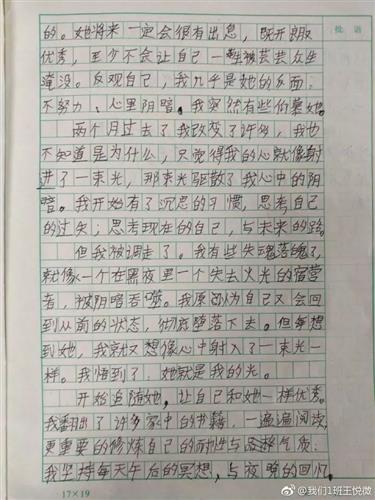 批语
的。她将来一定会很有出息，既开朗
优秀，至少不会让自己一生被芸芸众生
淹没。反观自己，我几乎是她的反面：
不努力、心里阴暗。我突然有些仰慕她。
两个月过去了我改变了许多，我也
不知道是为什么，只觉得我的心就像射
进了一束光，那束光驱散了我心中的阴
暗。我开始有了沉思的习惯，思考自己
的过失；思考现在的自己，与未来的路。
但我被调走了。我有些失魂落魄了，
就像一个在黑夜里一个失去火光的宿营
者，被阴暗吞噬。我原以为自己又会回
到从前的状态，彻底堕落下去。但每想
到她，我就又想像心中射入了一束光一
样。我悟到了，她就是我的光。
开始追随她，让自己和她一样优秀。
我翻出了许多家中的书籍，一遍遍阅读，
更重要的修炼自己的耐性与品格气质：
我坚持每天午后的冥想，与夜晚的回忆，
17×19
@我们1班王悦微